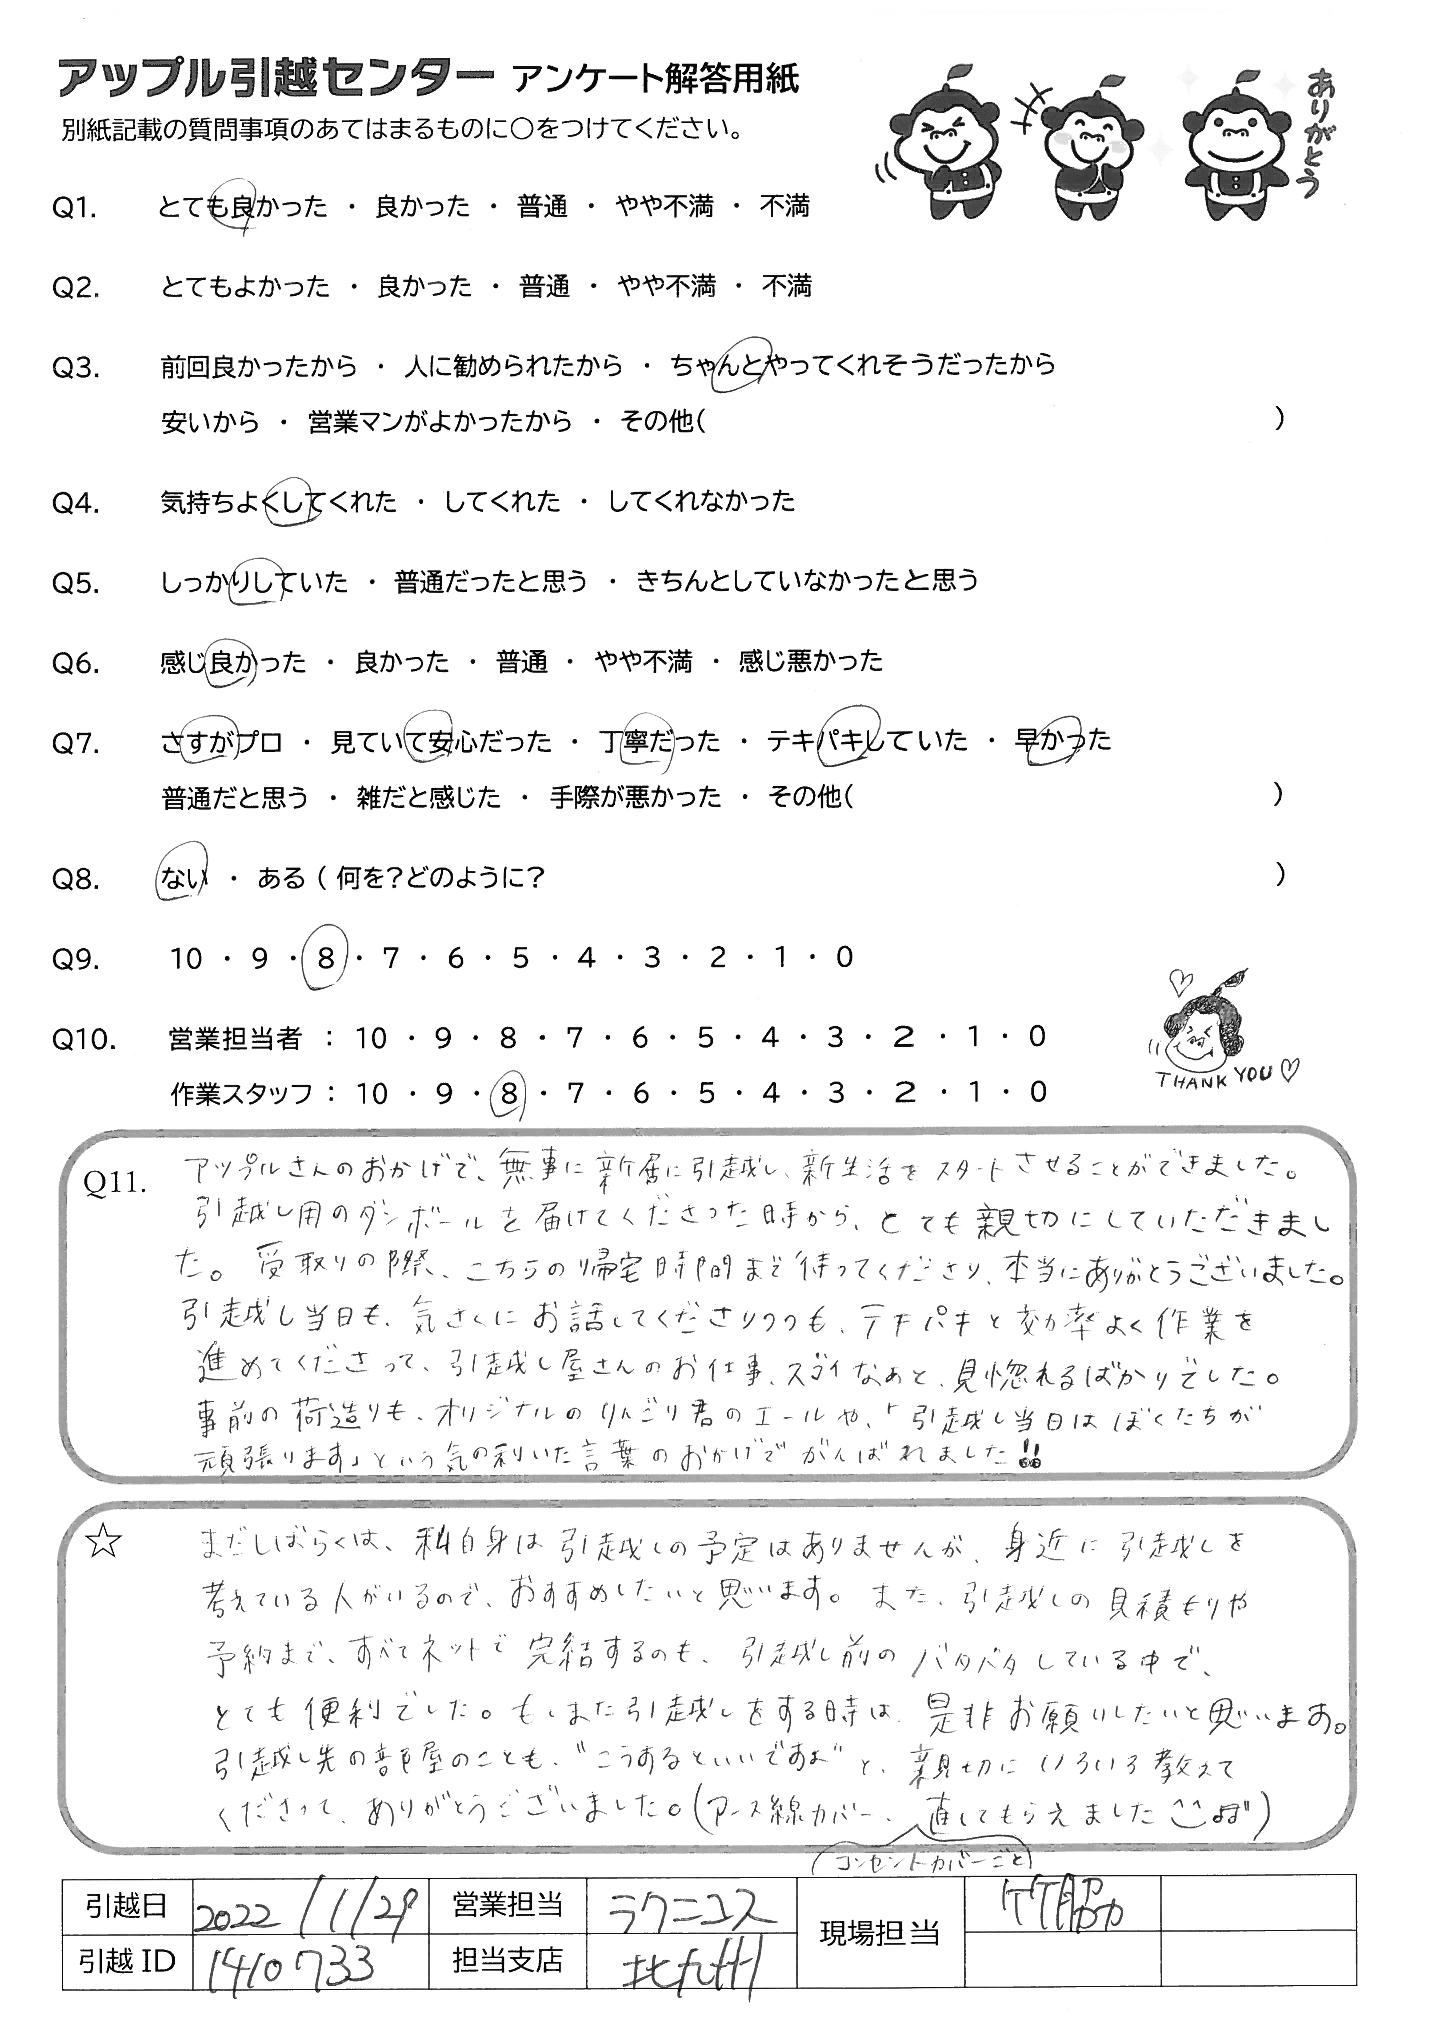 アップル引越センター アンケート解答用紙
別紙記載の質問事項のあてはまるものに○をつけてください。
ありがとう
Q1. とても良かった ・ 良かった ・ 普通 ・ やや不満 ・ 不満
Q2. とてもよかった ・ 良かった ・ 普通 ・ やや不満 ・ 不満
Q3. 前回良かったから ・ 人に勧められたから ・ ちゃんとやってくれそうだったから
安いから ・ 営業マンがよかったから ・ その他( )
Q4. 気持ちよくしてくれた ・ してくれた ・ してくれなかった
Q5. しっかりしていた ・ 普通だったと思う ・ きちんとしていなかったと思う
Q6. 感じ良かった ・ 良かった ・ 普通 ・ やや不満 ・ 感じ悪かった
Q7. さすがプロ ・ 見ていて安心だった ・ 丁寧だった ・ テキパキしていた ・ 早かった
普通だと思う ・ 雑だと感じた ・ 手際が悪かった ・ その他( )
Q8. ない ・ ある ( 何を?どのように? )
Q9. 10 ・ 9 ・ 8 ・ 7 ・ 6 ・ 5 ・ 4 ・ 3 ・ 2 ・ 1 ・ 0
Q10. 営業担当者 : 10 ・ 9 ・ 8 ・ 7 ・ 6 ・ 5 ・ 4 ・ 3 ・ 2 ・ 1 ・ 0
作業スタッフ : 10 ・ 9 ・ 8 ・ 7 ・ 6 ・ 5 ・ 4 ・ 3 ・ 2 ・ 1 ・ 0
THANK YOU♡
Q11. アップルさんのおかげで、無事に新居に引越し、新生活をスタートさせることができました。
引越し用のダンボールを届けてくださった時から、とても親切にしていただきまし
た。受取りの際、こちらの帰宅時間まで待ってくださり、本当にありがとうございました。
引越し当日も、気さくにお話してくださりつつも、テキパキと効率よく作業を
進めてくださって、引越し屋さんのお仕事、スゴイなぁと、見惚れるばかりでした。
事前の荷造りも、オリジナルのりんごり君のエールや、「引越し当日はぼくたちが
頑張ります」という気の利いた言葉のおかげでがんばれました!!
☆ まだしばらくは、私自身は引越しの予定はありませんが、身近に引越しを
考えている人がいるので、おすすめしたいと思います。また、引越しの見積もりや
予約まで、すべてネットで完結するのも、引越し前のバタバタしている中で、
とても便利でした。もしまた引越しをする時は、是非お願いしたいと思います。
引越し先の部屋のことも、"こうするといいですよ"と、親切にいろいろ教えて
くださって、ありがとうございました。(アース線カバー、直してもらえました)
コンセントカバーごと
引越日 2022/11/29 営業担当 ラクニコス 現場担当 竹脇
引越ID 1410733 担当支店 北九州